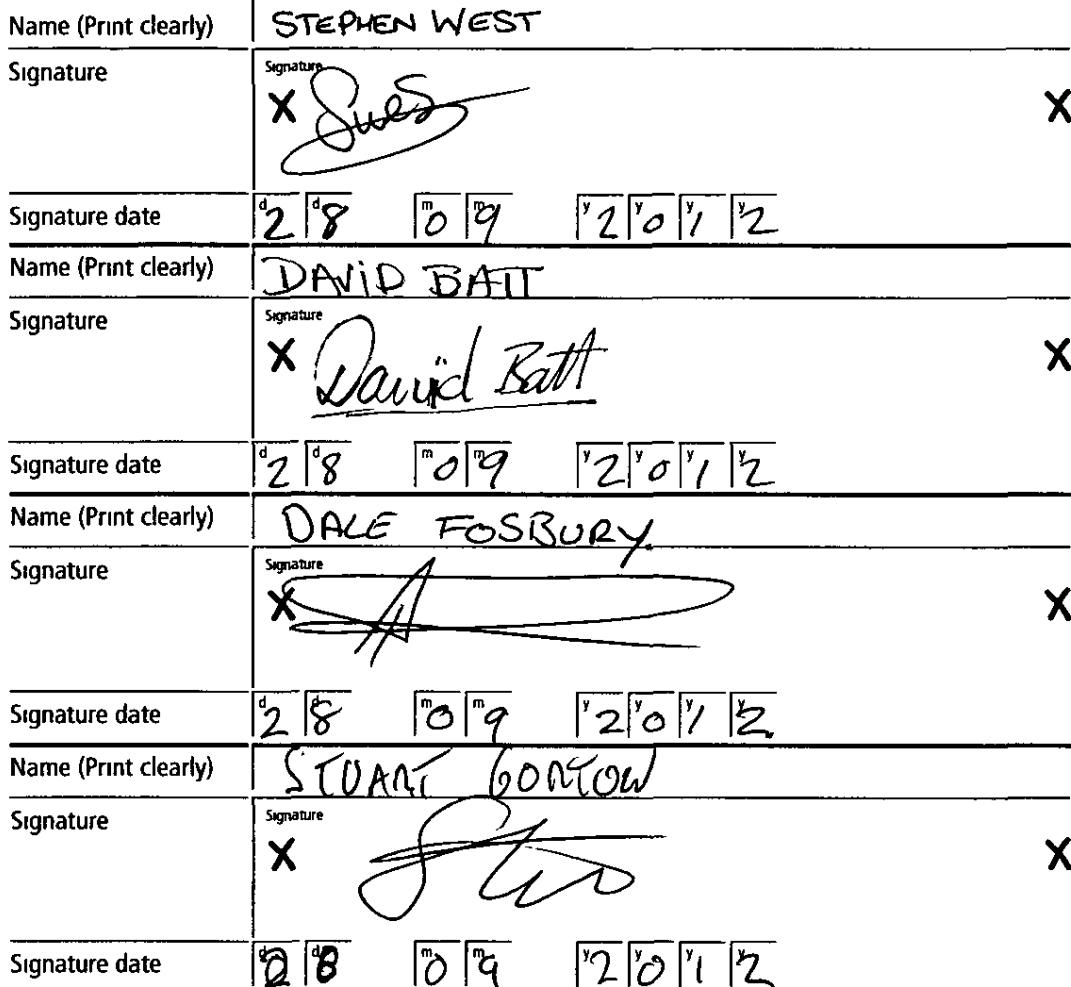 Name (Print clearly) STEPHEN WEST
Signature Signature
X Swes X
Signature date d2 d8 m0 m9 y2 y0 y1 y2
Name (Print clearly) DAViD BATT
Signature Signature
X David Batt X
Signature date d2 d8 m0 m9 y2 y0 y1 y2
Name (Print clearly) DALE FOSBURY.
Signature Signature
X X
Signature date d2 d8 m0 m9 y2 y0 y1 y2
Name (Print clearly) STUART GORTON
Signature Signature
X X
Signature date d2 d8 m0 m9 y2 y0 y1 y2